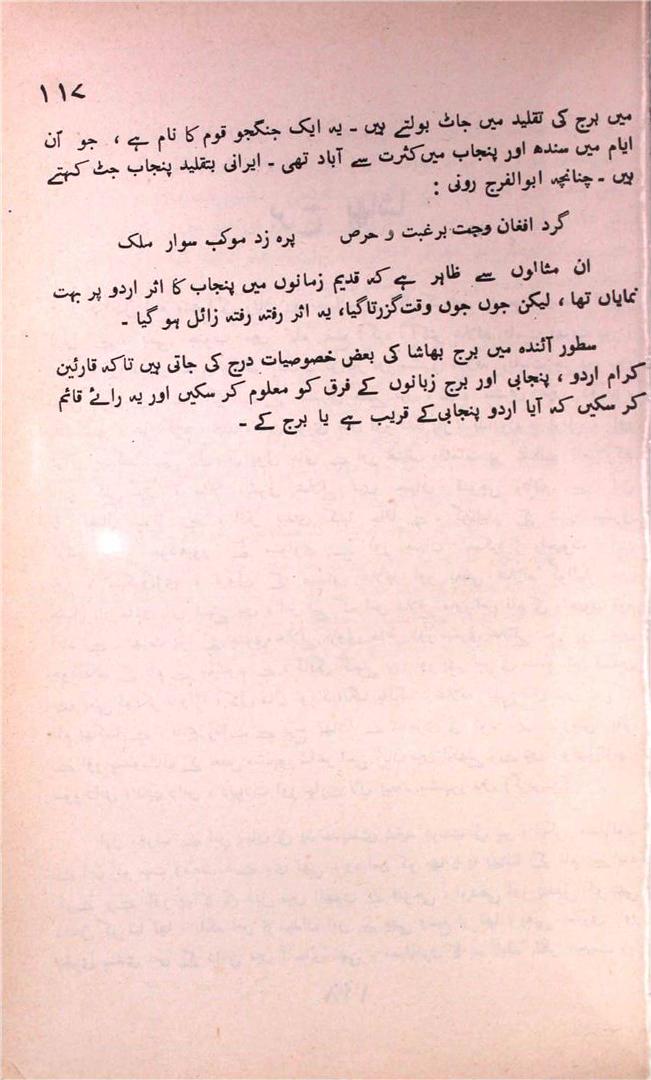 ۱۱۷
میں برج کی تقلید میں جاٹ بولتے ہیں ۔ یہ ایک جنگجو قوم کا نام ہے ، جو آن
ایام میں سندھ اور پنجاب میں کثرت سے آباد تھی ۔ ایرانی بتقلید پنجاب جٹ کہتے
ہیں ۔ چنانچہ ابوالفرج رونی :
گرد افغان وجت برغبت و حرص پره زد موکب سوار ملک
ان مثالوں سے ظاہر ہے کہ قدیم زمانوں میں پنجاب کا اثر اردو پر بہت
نمایاں تھا ، لیکن جوں جوں وقت گزرتا گیا ، یہ اثر رفتہ رفتہ زائل ہو گیا ۔
سطور آئندہ میں برج بھاشا کی بعض خصوصیات درج کی جاتی ہیں تاکہ قارئین
کرام اردو ، پنجابی اور برج زبانوں کے فرق کو معلوم کر سکیں اور یہ رائے قائم
کر سکیں کہ آیا اردو پنجابی کے قریب ہے یا برج کے ۔